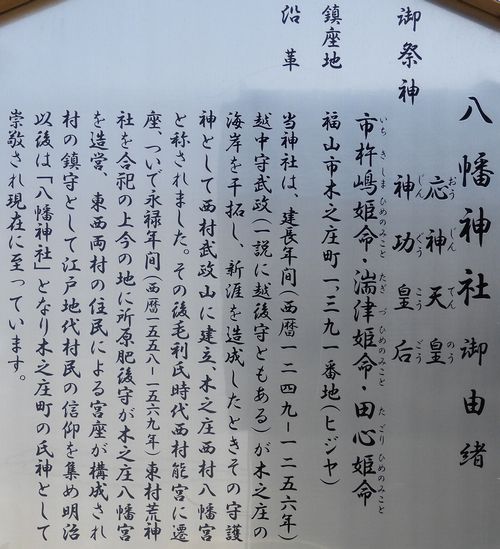 八幡神社御由緒
御祭神
応神天皇
おうじんてんのう
神功皇后
じんぐうこうごう
市杵嶋姫命・湍津姫命・田心姫命
いちきしまひめのみこと たぎづひめのみこと たごりひめのみこと
鎮座地 福山市木之庄町一,三九一番地(ヒジヤ)
沿革 当神社は、建長年間(西暦一二四九ー一二五六年)
越中守武政(一説に越後守ともある)が木之庄の
海岸を干拓し、新涯を造成したときその守護
神として西村武政山に建立、木之庄西村八幡宮
と称されました。その後毛利氏時代西村能宮に遷
座、ついで永禄年間(西暦一五五八ー一五六九年)東村荒神
社を合祀の上今の地に所原肥後守が木之庄八幡宮
を造営、東西両村の住民による宮座が構成され
村の鎮守として江戸地代村民の信仰を集め明治
以後は「八幡神社」となり木之庄町の氏神として
崇敬され現在に至っています。